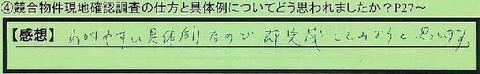 ④競合物件現地確認調査の仕方と具体例についてどう思われましたか？P27～
【感想】わかりやすい具体例なので即実践してみようと思います。